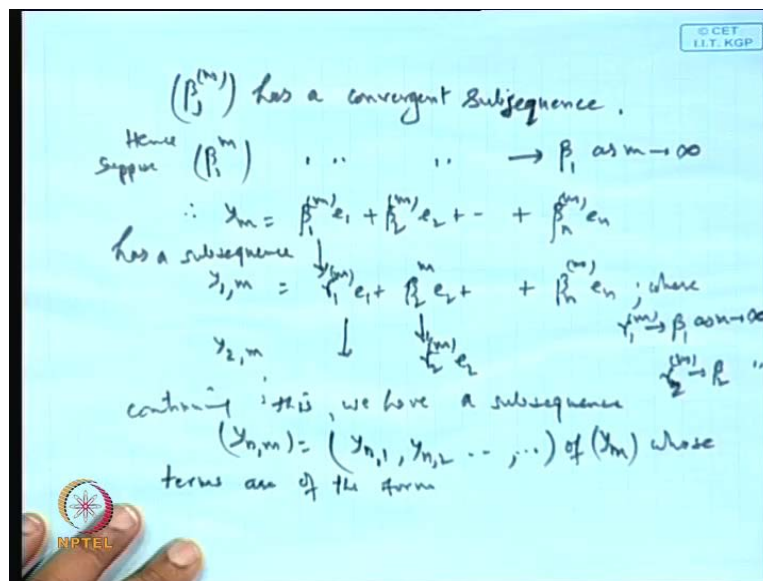 © CET
I.I.T. KGP
(β_j^(m)) has a convergent subsequence.
Hence
suppose (β_1^m) ,, ,, → β_1 as m → ∞
∴ y_m = β_1^(m) e_1 + β_2^(m) e_2 + - + β_n^(m) e_n
has a subsequence ↓
y_1,m = γ_1^(m) e_1 + β_2^m e_2 + + β_n^(m) e_n ; where
γ_1^(m) → β_1 as m → ∞
y_2,m ↓ ↓ γ_2^(m) e_2 γ_2^(m) → β_2 ''
continuing this, we have a subsequence
(y_n,m) = (y_n,1, y_n,2 -- , ...) of (y_m) whose
terms are of the form
NPTEL